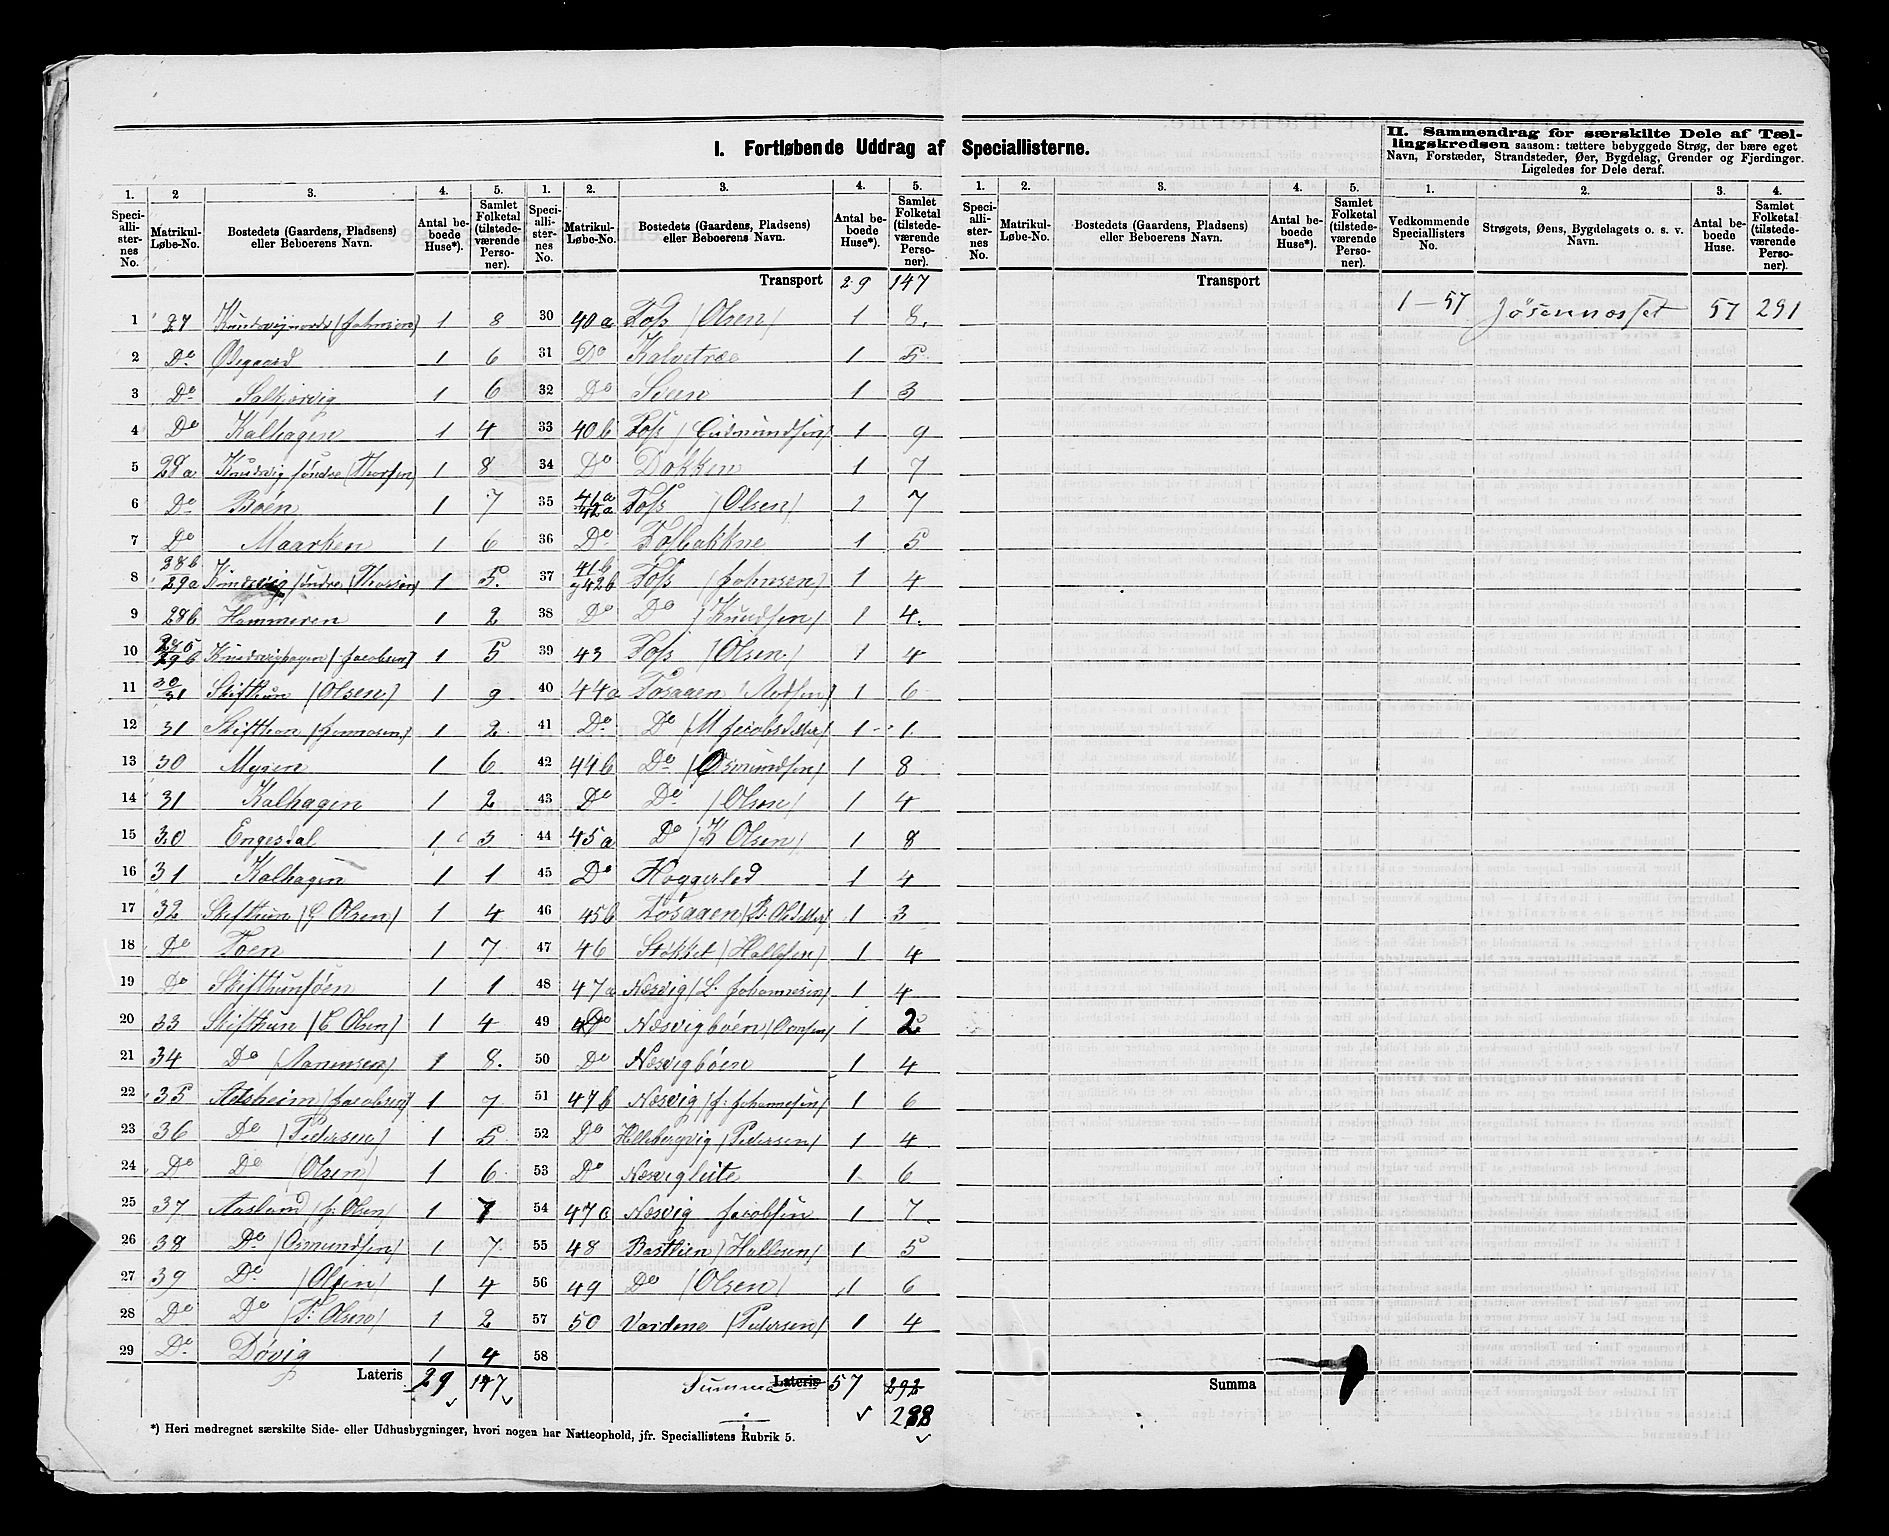 I. Fortløbende Uddrag af Speciallisterne.
II. Sammendrag for særskilte Dele af Tællingskredsen saasom: tættere bebyggede Strøg, der bære eget
Navn, Forstæder, Strandsteder, Øer, Bygdelag, Grender og Fjerdinger.
Ligeledes for Dele deraf.
1. 2 3. 4. 5. 1. 2. 3. 4. 5. 1. 2. 3. 4. 5. 1. 2. 3. 4.
Speciallisternes No. Matrikul-Løbe-No. Bostedets (Gaardens, Pladsens) eller Beboerens Navn. Antal beboede Huse*). Samlet Folketal (tilstedeværende Personer).
Speciallisternes No. Matrikul-Løbe-No. Bostedets (Gaardens, Pladsens) eller Beboerens Navn. Antal beboede Huse*). Samlet Folketal (tilstedeværende Personer).
Speciallisternes No. Matrikul-Løbe-No. Bostedets (Gaardens, Pladsens) eller Beboerens Navn. Antal beboede Huse*). Samlet Folketal (tilstedeværende Personer).
Vedkommende Speciallisters No. Strøgets, Øens, Bygdelagets o. s. v. Navn. Antal beboede Huse. Samlet Folketal (tilstedeværende Personer).
1 27 1 8
2 Do Ødegaard 1 6
3 Do 1 6
4 Do Kalhagen 1 4
5 28a Knudsvig søndre (Thorsen) 1 8
6 Do Bøen 1 7
7 Do Maarken 1 6
8 28b 29a Knudsvig søndre (Thorsen) 1 5
9 28b Hammeren 1 2
10 29b Knudsvighagen (Jacobsen) 1 5
11 30 31 Skifthun (Olsen) 1 9
12 31 Skifthun 1 2
13 30 Mygen 1 6
14 31 Kalhagen 1 2
15 30 Engesdal 1 3
16 31 Kalhagen 1 1
17 32 Skifthun (G Olsen) 1 4
18 Do Toen 1 7
19 Do Skifthunsøen 1 1
20 33 Skifthun (E Olsen) 1 4
21 34 Do 1 8
22 35 Aasheim (Jacobsen) 1 7
23 36 Do (Pedersen) 1 5
24 Do Do (Olsen) 1 6
25 37 Aasland (J: Olsen) 1 7
26 38 Do (Osmundsen) 1 7
27 39 Do (Olsen) 1 4
28 Do Do (T: Olsen) 1 2
29 Do Døvig 1 4
Lateris 29 147
Transport 29 147
30 40a Foss (Olsen) 1 8
31 Do Kalvetræe 1 5
32 Do Sien 1 3
33 40b Foss (Gudmundsen) 1 9
34 Do Dokken 1 7
35 41a 42a Foss (Olsen) 1 7
36 Do Fosbakkne 1 5
37 41b og 42b Foss (Johnsen) 1 4
38 Do Do (Knudsen) 1 4
39 43 Foss (Olsen) 1 4
40 44a Fosaaen 1 6
41 Do Do (M Jacobsdatter) 1 1
42 44b Do (Osmundsen) 1 8
43 Do Do (Olson) 1 4
44 45a Do (K Olsen) 1 8
45 Do Høggerled 1 4
46 45b Fosaaen 1 3
47 46 Stokket (Hallesen) 1 4
48 47a Næsvig (L. Johannesen) 1 4
49 Do Næsvigbøen 1 2
50 Do Næsvigbøen 1 4
51 47b Næsvig (J: Johannesen) 1 6
52 Do Hillebergvig (Pedersen) 1 4
53 Do Næsvigleite 1 6
54 47a Næsvig Jacobsen 1 7
55 48 (Hallesen) 1 5
56 49 Do (Olsen) 1 6
57 50 Vardene (Pedersen) 1 4
58
Summa Lateris 57 292
288
Transport
Summa
1 – 57 Jøsennæsset 57 291
*) Heri medregnet særskilte Side- eller Udhusbygninger, hvori nogen har Natteophold, jfr. Speciallistens Rubrik 5.